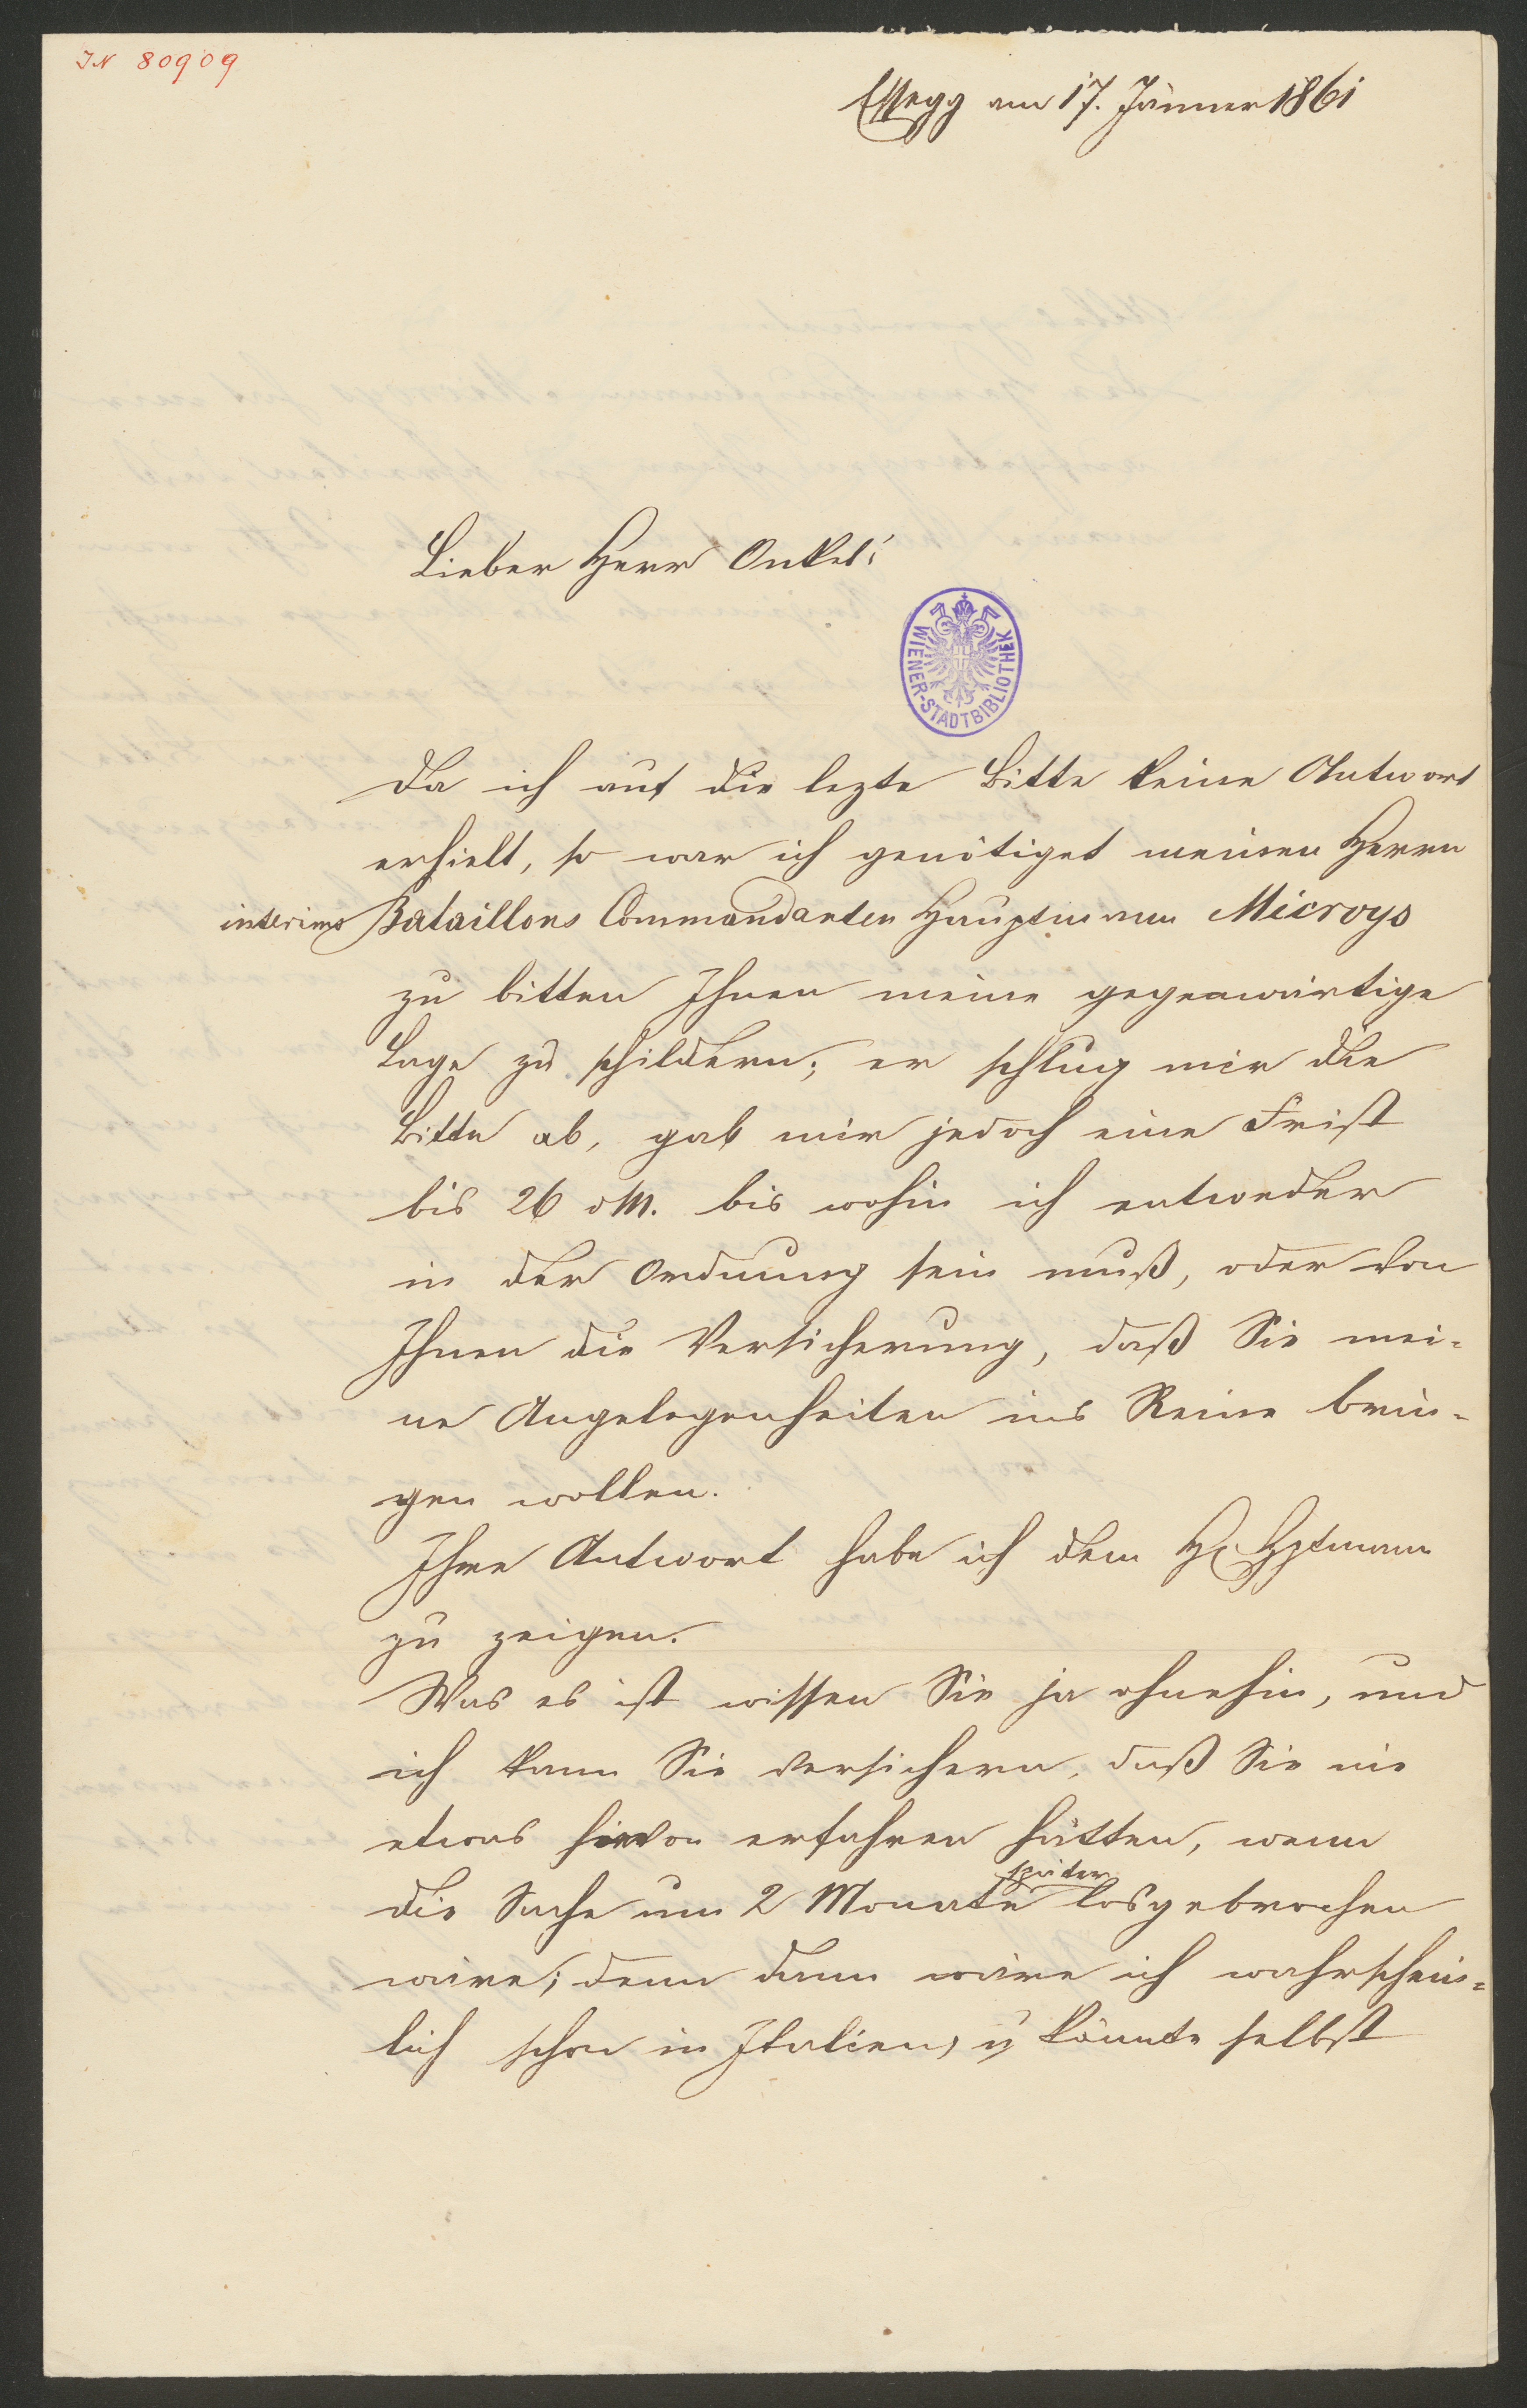 IN 80909
Essegg am 17. Jänner 1861
Lieber Herr Onkel!
WIENER-STADTBIBLIOTHEK
Da ich auf die lezte Bitte keine Antwort
erhielt, so war ich genötiget meinen Herrn
interims Bataillons Commandanten Hauptmann Microys
zu bitten Ihnen meine gegenwärtige
Lage zu schildern; er schlug mir die
Bitte ab, gab mir jedoch eine Frist
bis 26 dM. bis wohin ich entweder
in der Ordnung sein muß, oder von
Ihnen die Versicherung, daß Sie mei-
ne Angelegenheiten ins Reine brin-
gen wollen.
Ihre Antwort habe ich dem H. Hptmann
zu zeigen.
Was es ist wissen Sie ja ohnehin, und
ich kann Sie versichern, daß Sie nie
etwas hievon erfahren hätten, wenn
die Sache um 2 Monate später losgebrochen
wäre; denn dann wäre ich wahrschein-
lich schon in Italien, u könnte selbst